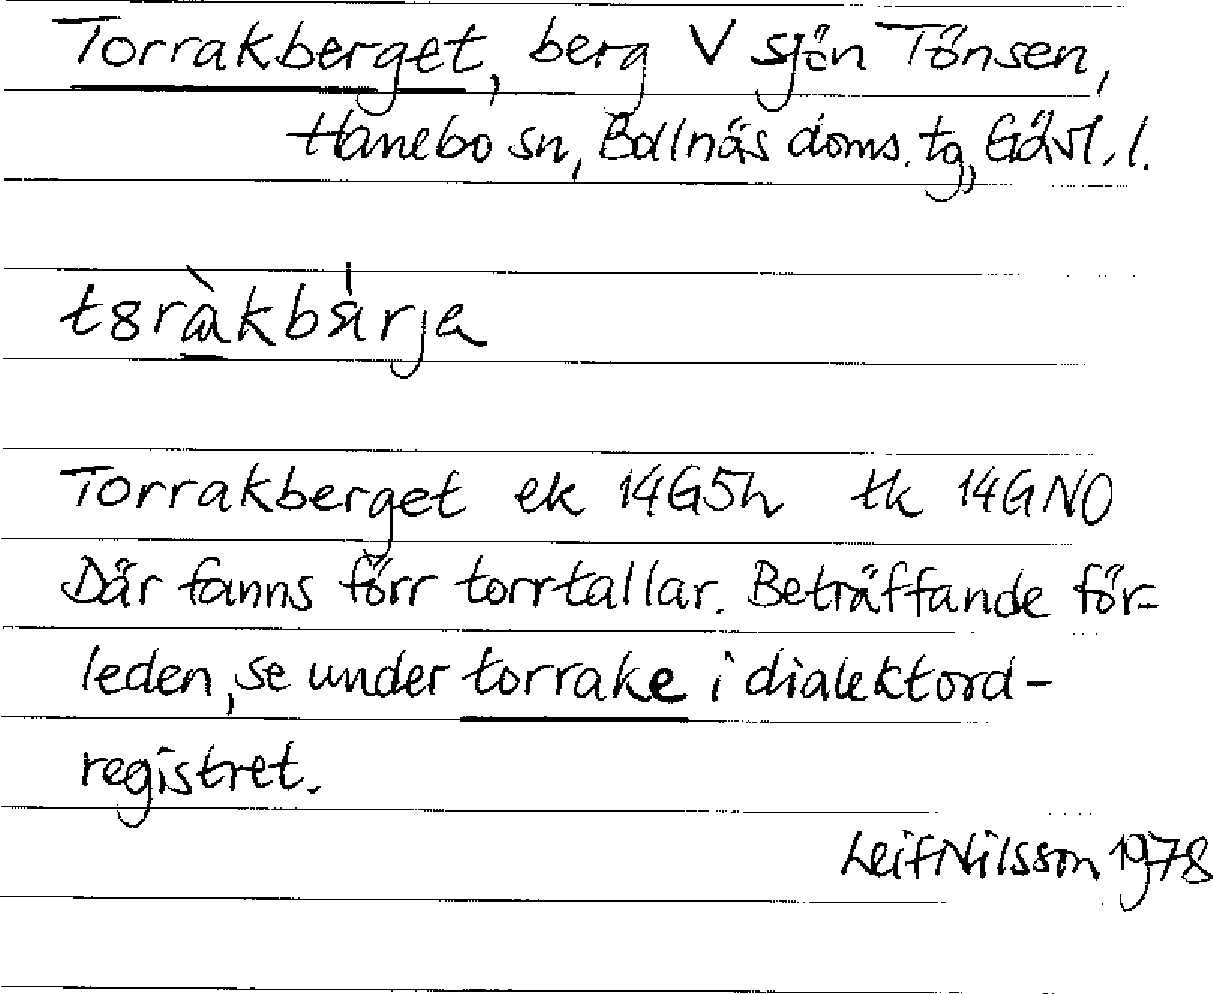 Torrakberget, berg V sjön Tönsen,
Hanebo sn, Bollnäs doms. tg, Gävl. l.
Torrakberget ek 14G5h tk 14GNO
Där fanns förr torrtallar. Beträffande för-
leden, se under torrake i dialektord-
registret.
Leif Nilsson 1978